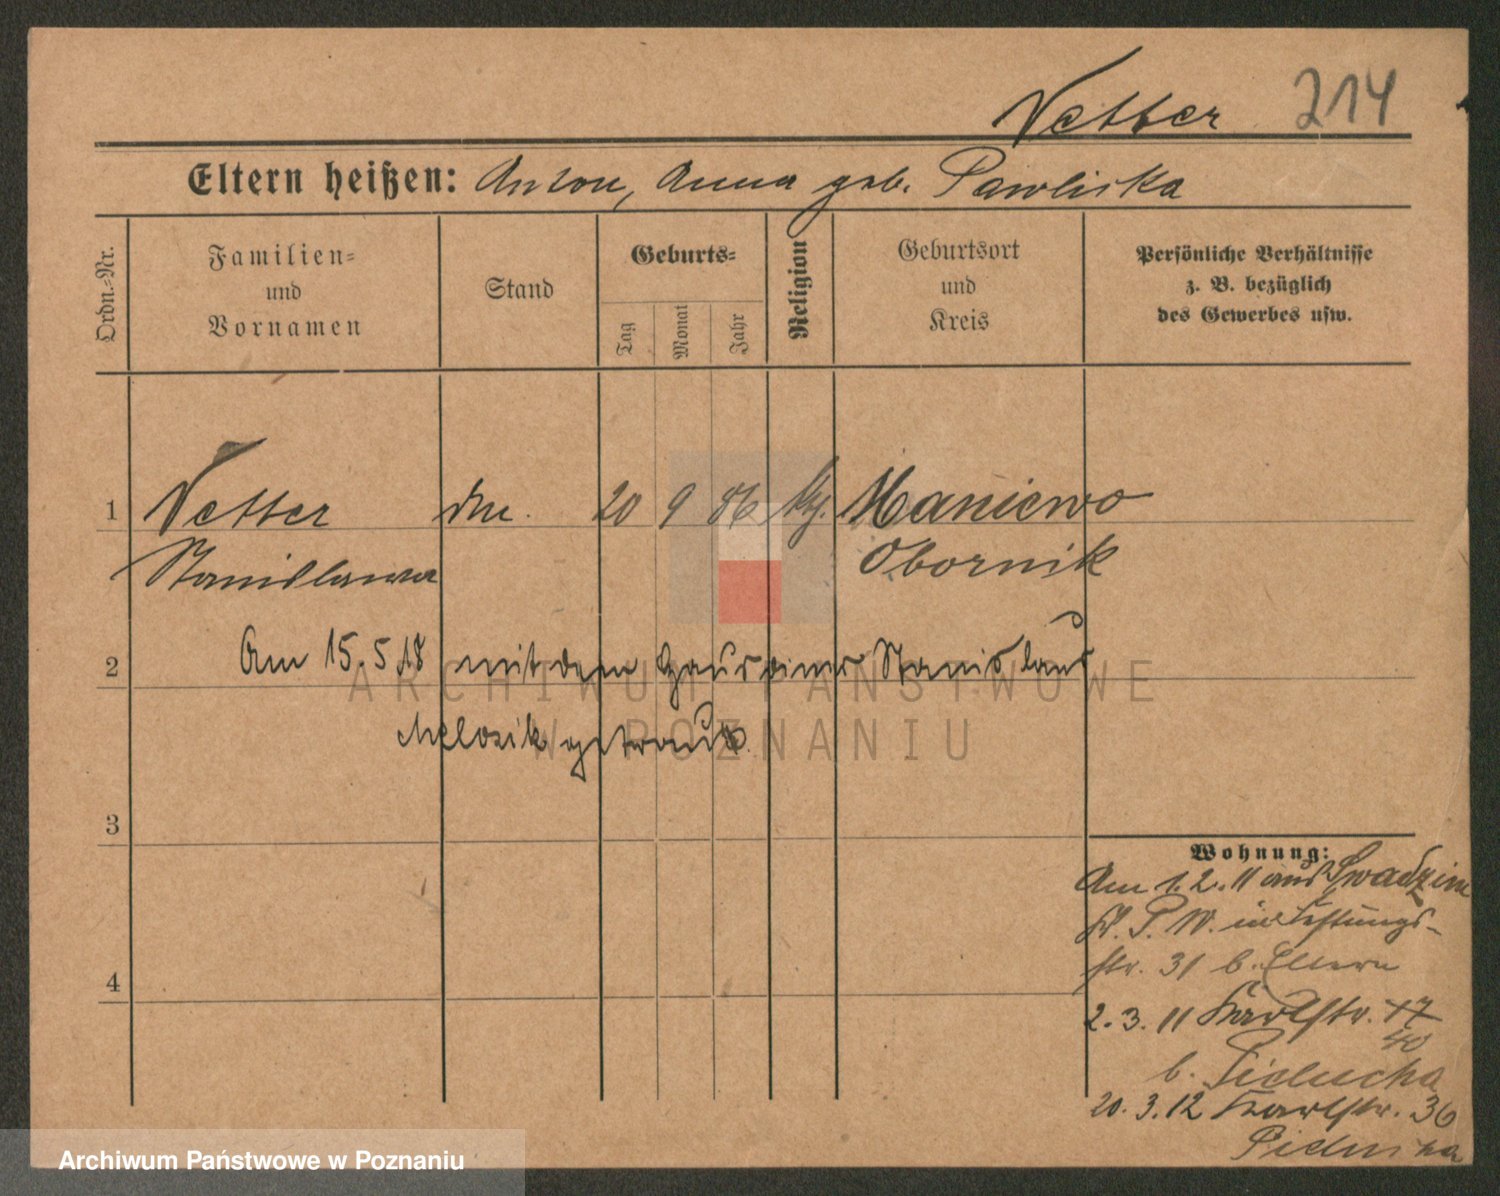 Vetter 214
Eltern heißen: Anton, Anna geb. Pawliska
Ordn.-Nr.
Familien-
und
Vornamen
Stand
Geburts-
Tag
Monat
Jahr
Religion
Geburtsort
und
Kreis
Persönliche Verhältnisse
z. B. bezüglich
des Gewerbes usw.
1 Vetter 20 9 86 Maniewo
Stanislawa Obornik
2 Am 15.5.18 mit dem Hausdiener Stanislaus
Melosik getraut.
3
4
Wohnung:
Am 1.2.11 aus Swadzim
Kr. P. W. in Festungs-
str. 31 b. Eltern
2.3.11 Karlstr. 17
40
b. Piducha
20.3.12 Karlstr. 36
Piducha
ARCHIWUM PAŃSTWOWE
W POZNANIU
Archiwum Państwowe w Poznaniu